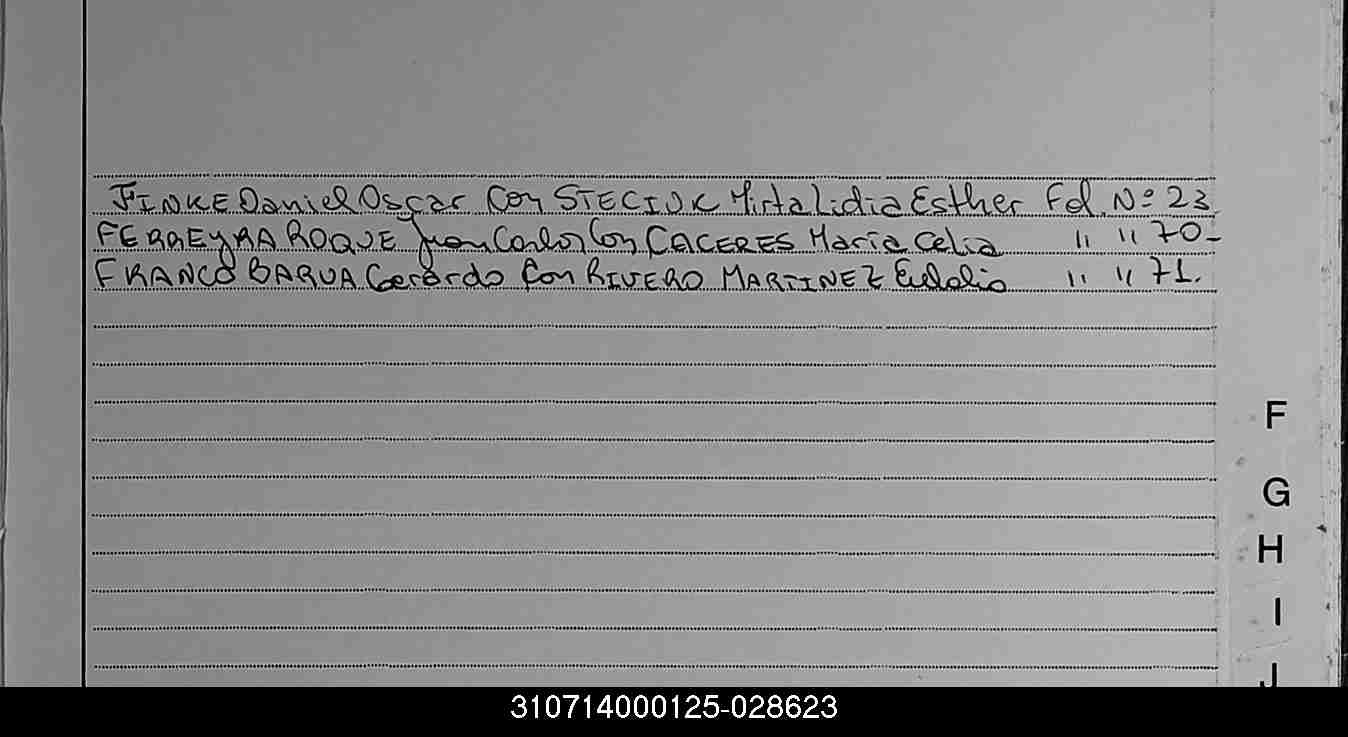 FINKE Daniel Oscar Con STECIUK Mirta Lidia Esther Fol. Nº 23.
FERREyRA ROQUE Juan Carlos Con CACERES María Celia " " 70-
FRANCO BARUA Gerardo Con RIVERO MARTINEZ Eulalia " " 71.
F
G
H
I
J
310714000125-028623